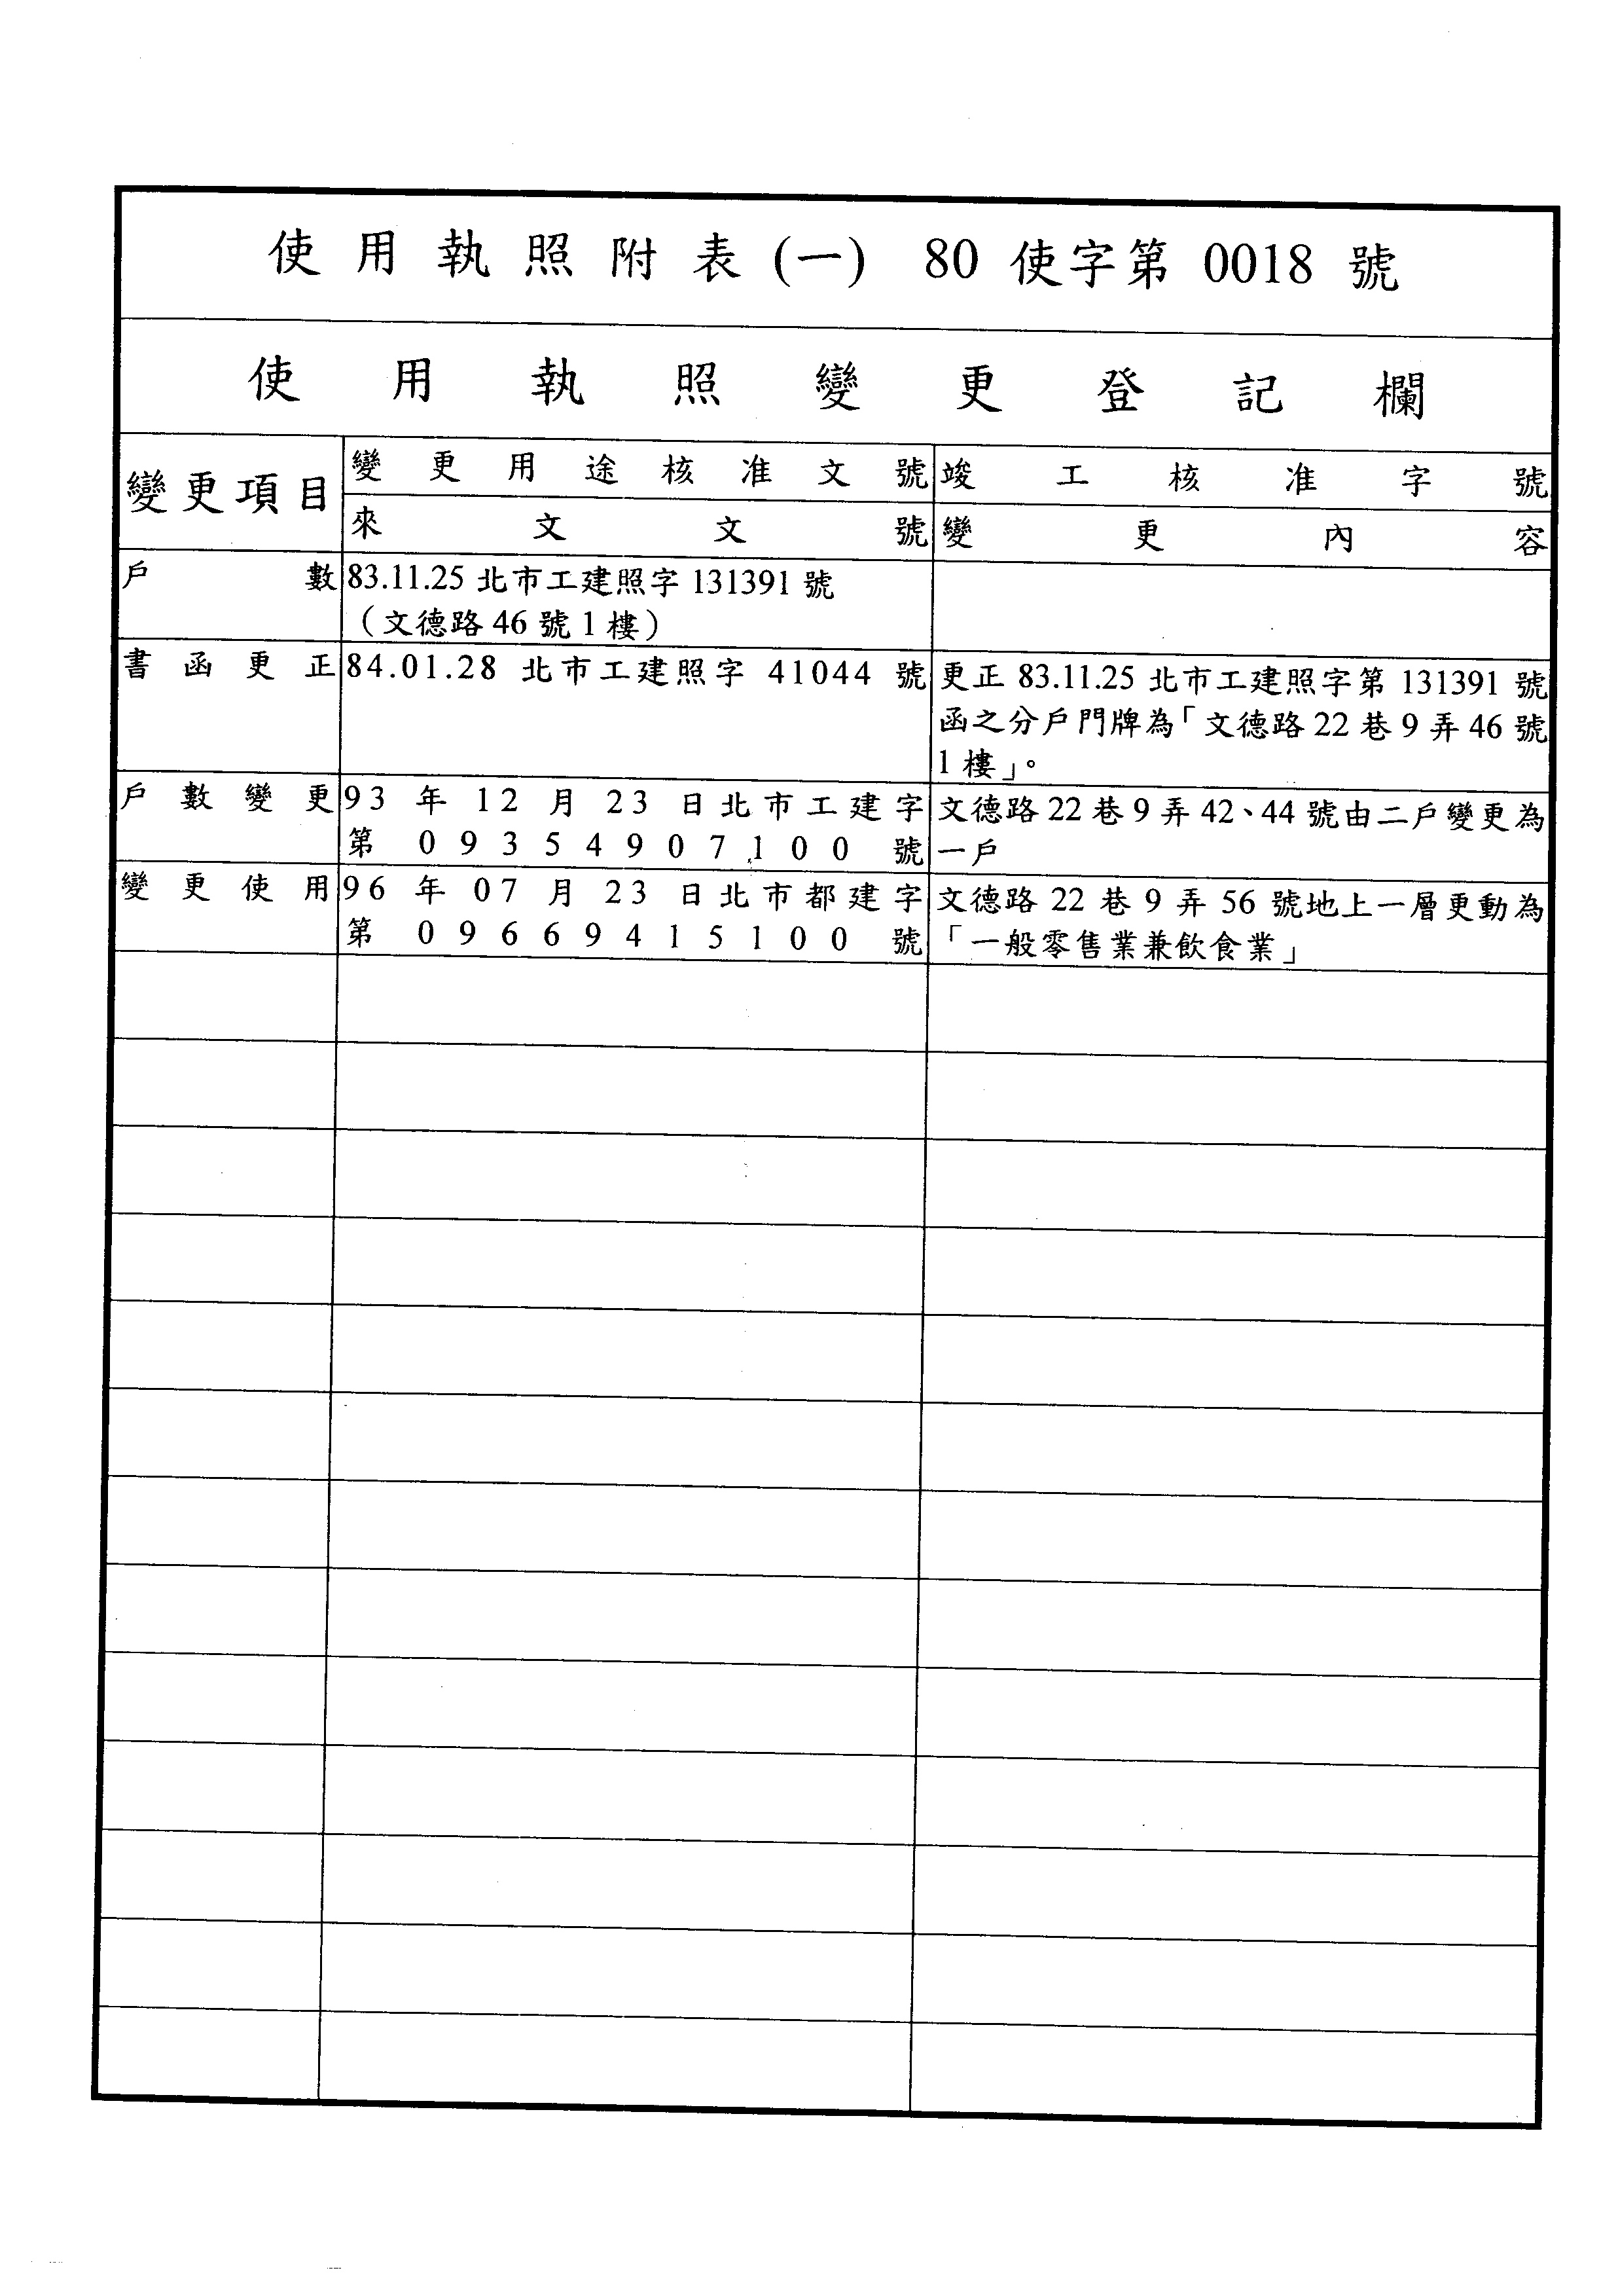 使用執照附表(一) 80 使字第 0018 號
使用執照變更登記欄
變更項目
變更用途核准文號
竣工核准字號
來文文號
變更內容
戶數
83.11.25 北市工建照字 131391 號
（文德路 46 號 1 樓）
書函更正
84.01.28 北市工建照字 41044 號
更正 83.11.25 北市工建照字第 131391 號
函之分戶門牌為「文德路 22 巷 9 弄 46 號
1 樓」。
戶數變更
93 年 12 月 23 日北市工建字
第 09354907100 號
文德路 22 巷 9 弄 42、44 號由二戶變更為
一戶
變更使用
96 年 07 月 23 日北市都建字
第 09669415100 號
文德路 22 巷 9 弄 56 號地上一層更動為
「一般零售業兼飲食業」